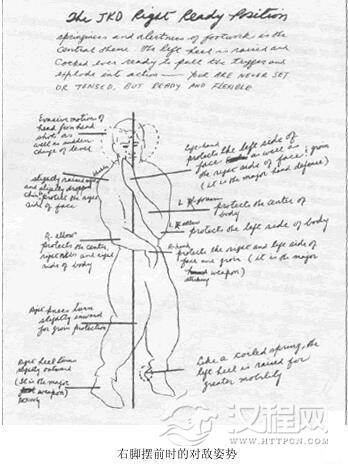 The JKD Right Ready Position
springiness and alertness of footwork is the
central theme. The left heel is raised and
cocked ever ready to pull the trigger and
explode into action — YOU ARE NEVER SET
OR TENSED, BUT READY AND FLEXIBLE
Evasive motion of
head from hand
shots as
well as sudden
change of level
slightly raised
and slightly dropped
chin protect the
side of face
R. elbow
protects the center,
right ribs and right
side of body
Right knee turn
slightly inward
for groin protection
Right heel turn
slightly outward
(It is the major
weapon)
kicking
Left hand
protects the left side of
face as well as
the right side of face; groin
(it is the major hand defense)
L forearm
protects the center of
body
L elbow
protects the left side of body
R. hand
protects the right and left side of
face and groin (it is the major
weapon)
striking
Like a coiled spring, the
left heel is raised for
greater mobility
汉程网
WWW.HTTPCN.COM
右脚摆前时的对敌姿势